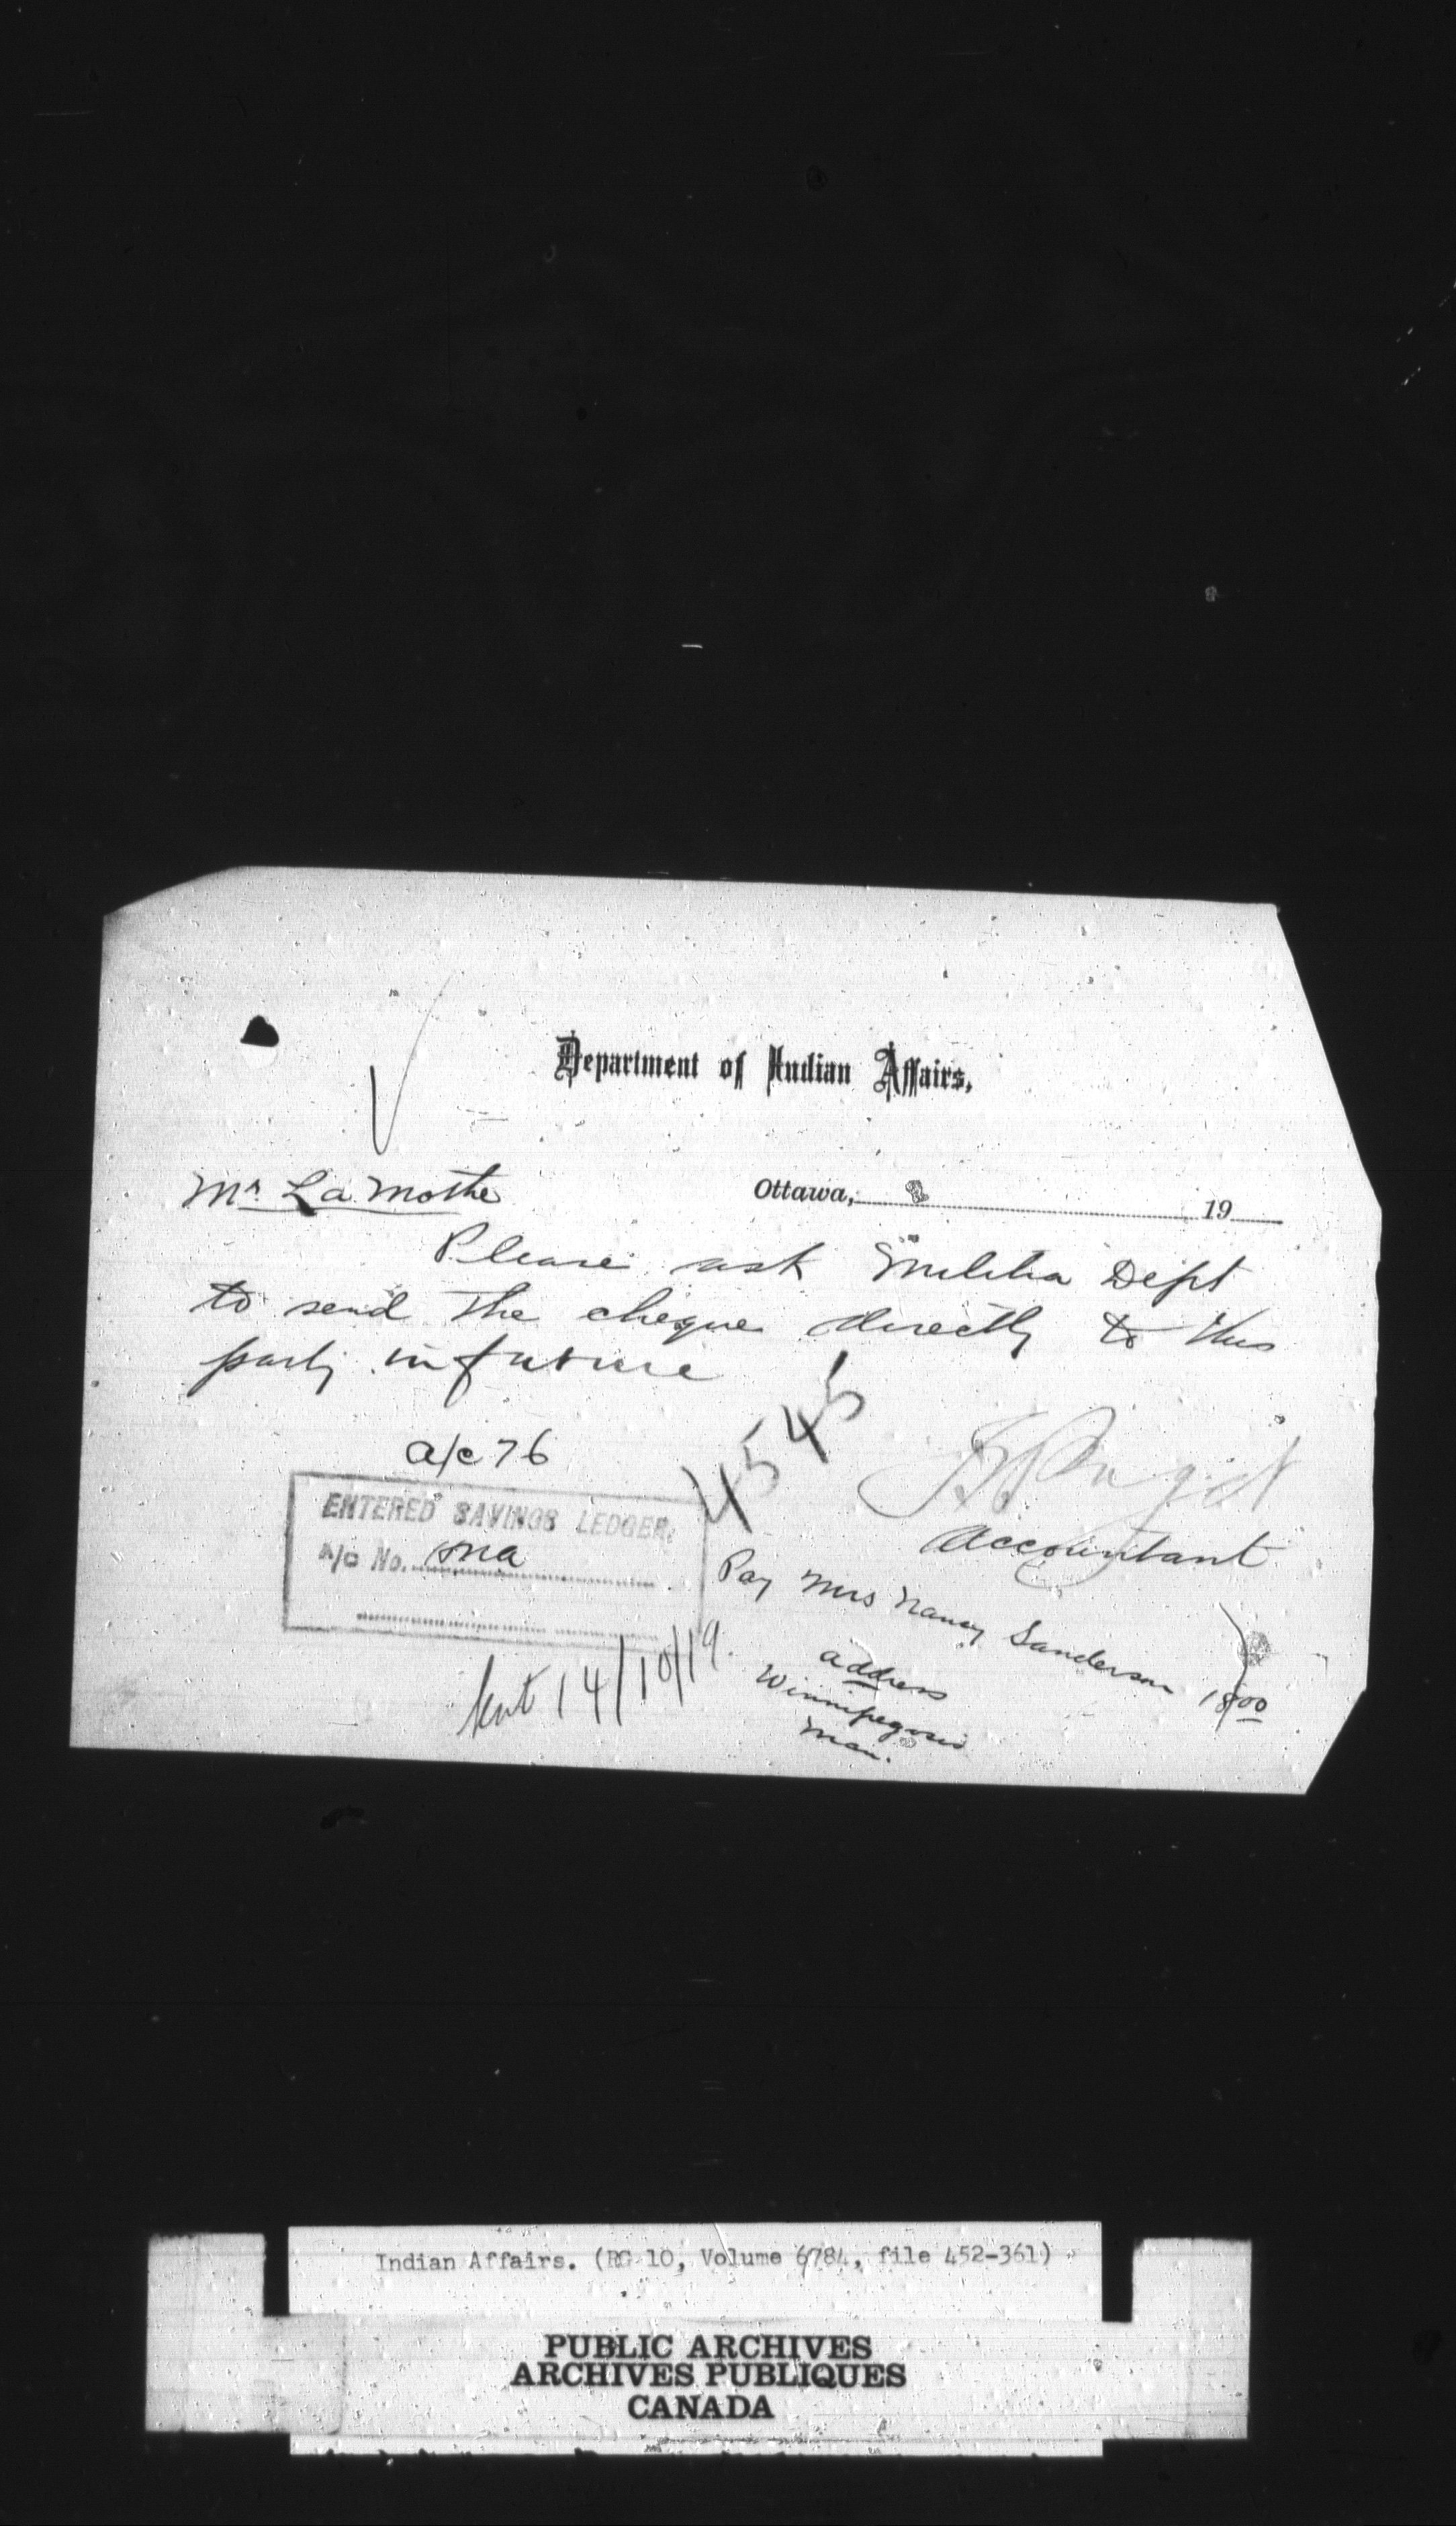 Department of Indian Affairs,
Mr. LaMothe
Ottawa, 19
Please ask Militia Dept
to send the cheque directly to this
party in future
a/c 76
4545
Accountant
ENTERED SAVINGS LEDGER,
A/c No.
Pay Mrs Nancy Sanderson 1800
address
Winnipegosis
Man.
sent 14/10/19.
Indian Affairs. (RG 10, Volume 6784, file 452-361)
PUBLIC ARCHIVES
ARCHIVES PUBLIQUES
CANADA